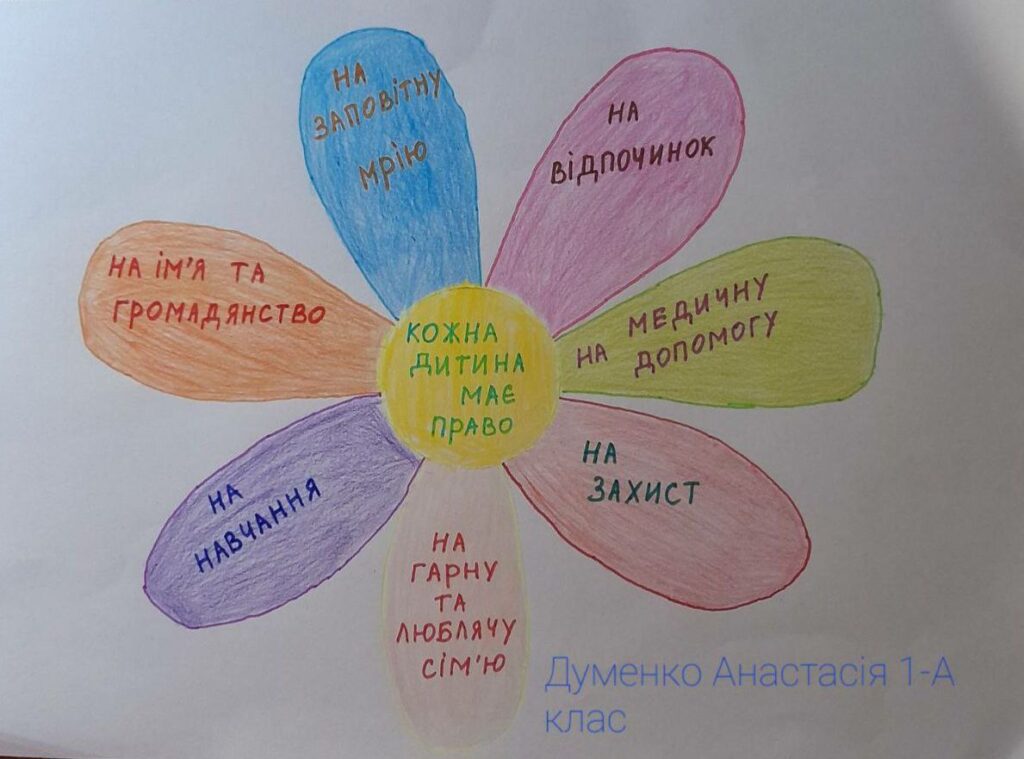 КОЖНА
ДИТИНА
МАЄ
ПРАВО
НА
ЗАПОВІТНУ
МРІЮ
НА
ВІДПОЧИНОК
НА МЕДИЧНУ
ДОПОМОГУ
НА
ЗАХИСТ
НА
ГАРНУ
ТА
ЛЮБЛЯЧУ
СІМ'Ю
НА
НАВЧАННЯ
НА ІМ'Я ТА
ГРОМАДЯНСТВО
Думенко Анастасія 1-А
клас